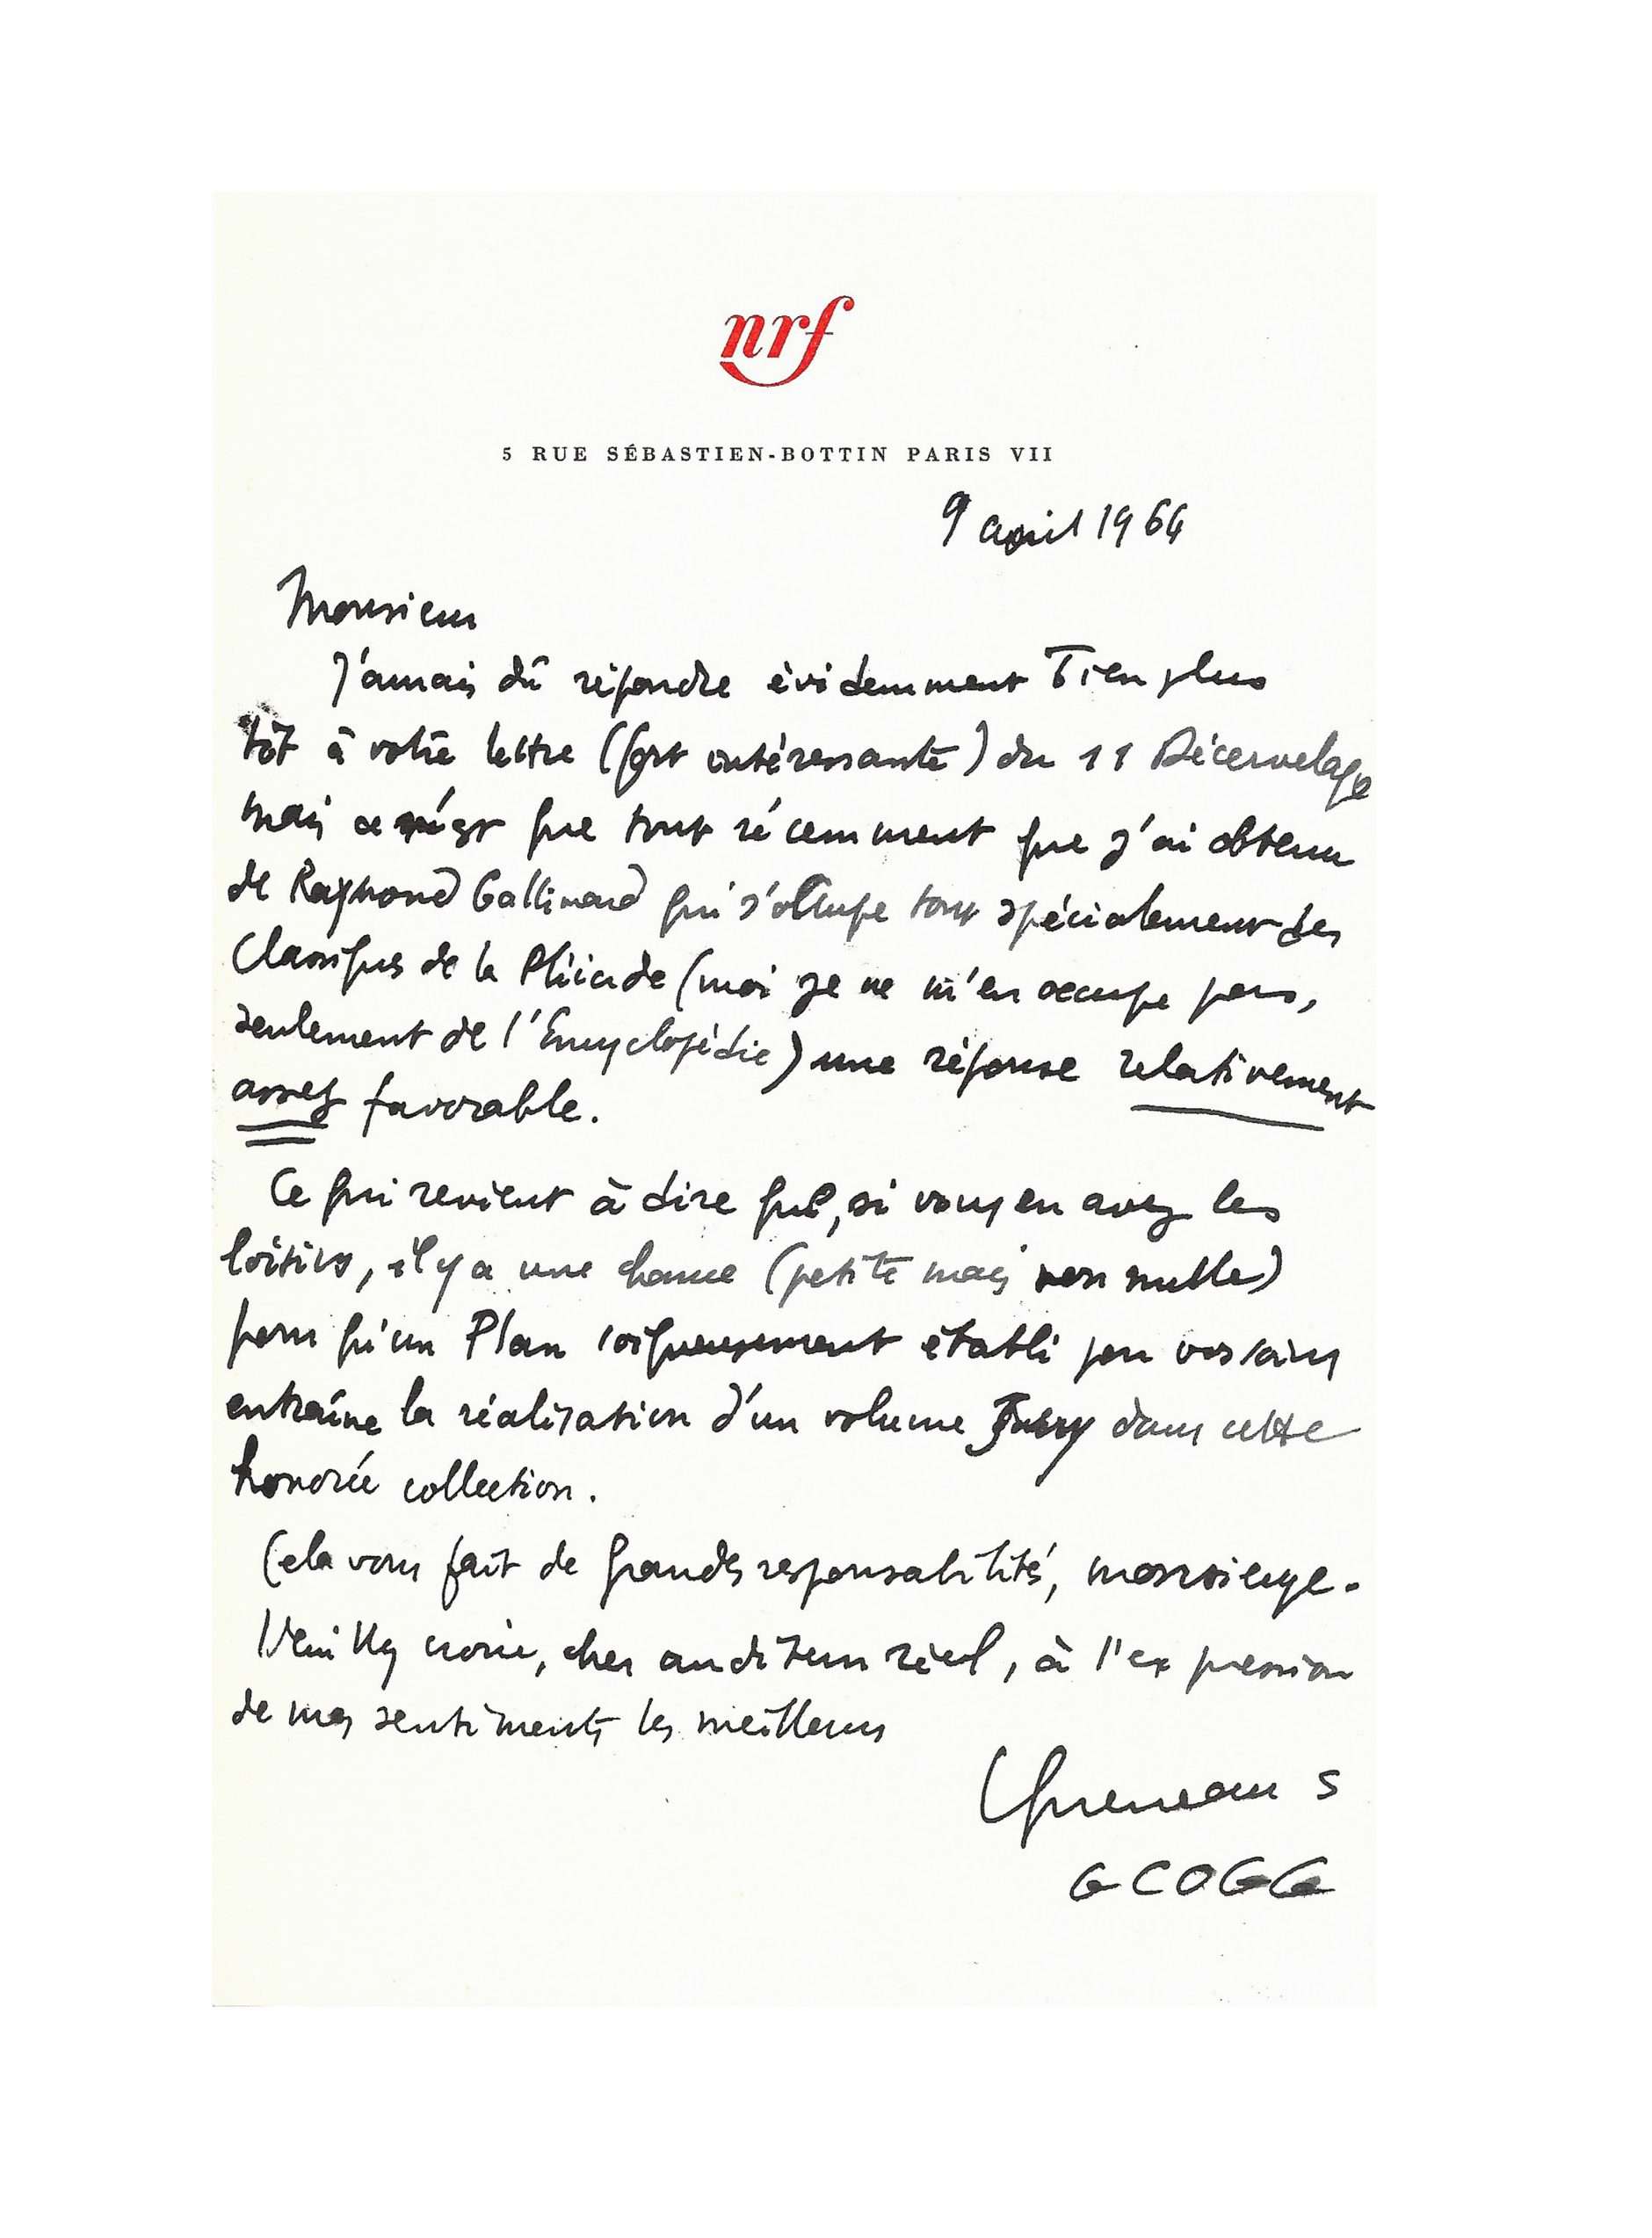 nrf
5 RUE SÉBASTIEN-BOTTIN PARIS VII
9 avril 1964
Monsieur
J'aurais dû répondre évidemment bien plus
tôt à votre lettre (fort intéressante) du 11 Décervelage
mais ce n'est que tout récemment que j'ai obtenu
de Raymond Gallimard qui s'occupe tout spécialement des
Classiques de la Pléiade (moi je ne m'en occupe pas,
seulement de l'Encyclopédie) une réponse relativement
assez favorable.
Ce qui revient à dire que, si vous en avez les
loisirs, il y a une chance (petite mais non nulle)
pour qu'un Plan soigneusement établi par vos soins
entraîne la réalisation d'un volume Jarry dans cette
honorée collection.
Cela vous fait de grandes responsabilités, monsieuye.
Veuillez croire, cher auditeur réel, à l'expression
de mes sentiments les meilleurs
Queneau S
GCOGG